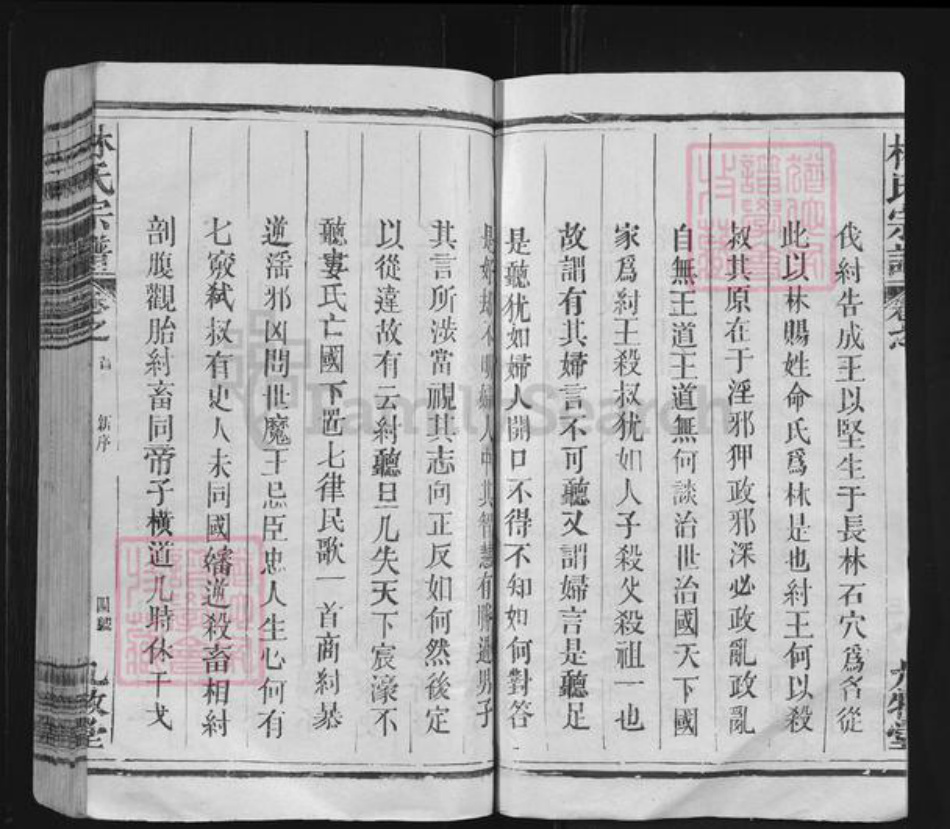 伐紂告成王以堅生于長林石穴爲名從
此以林賜姓命氏爲林是也紂王何以殺
叔其原在于淫邪狎政邪深必政亂政亂
自無王道王道無何談治世治國天下國
家爲紂王殺叔犹如人子殺父殺祖一也
故謂有其婦言不可聽又謂婦言是聽足
是聽犹如婦人開口不得不知如何對答
是好却不明婦人中其智慧有勝過男子
其言所涉當視其志向正反如何然後定
以從違故有云紂聽旦几失天下宸濠不
聽婁氏亡國下置七律民歌一首商紂恭
逆滛邪凶問世魔王忌臣忠人生心何有
七竅弑叔有史人未同國蟠逆殺畜相紂
剖腹觀胎紂畜同帝子橫道几時休干戈
林氏宗譜
卷之
新序
九牧堂
FamilySearch